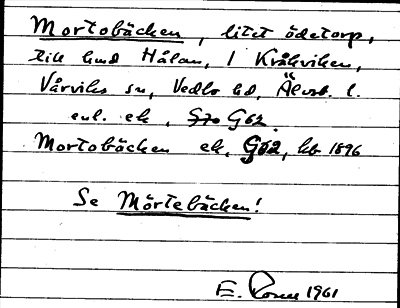 Mortobäcken, litet ödetorp,
till hmd Hålan, 1 Kråkviken,
Vårviks sn, Vedbo hd, Älvsb. l.
enl. ek, G62.
Mortobäcken ek, G62, hb 1896
Se Mörtebäcken!
E. 1961